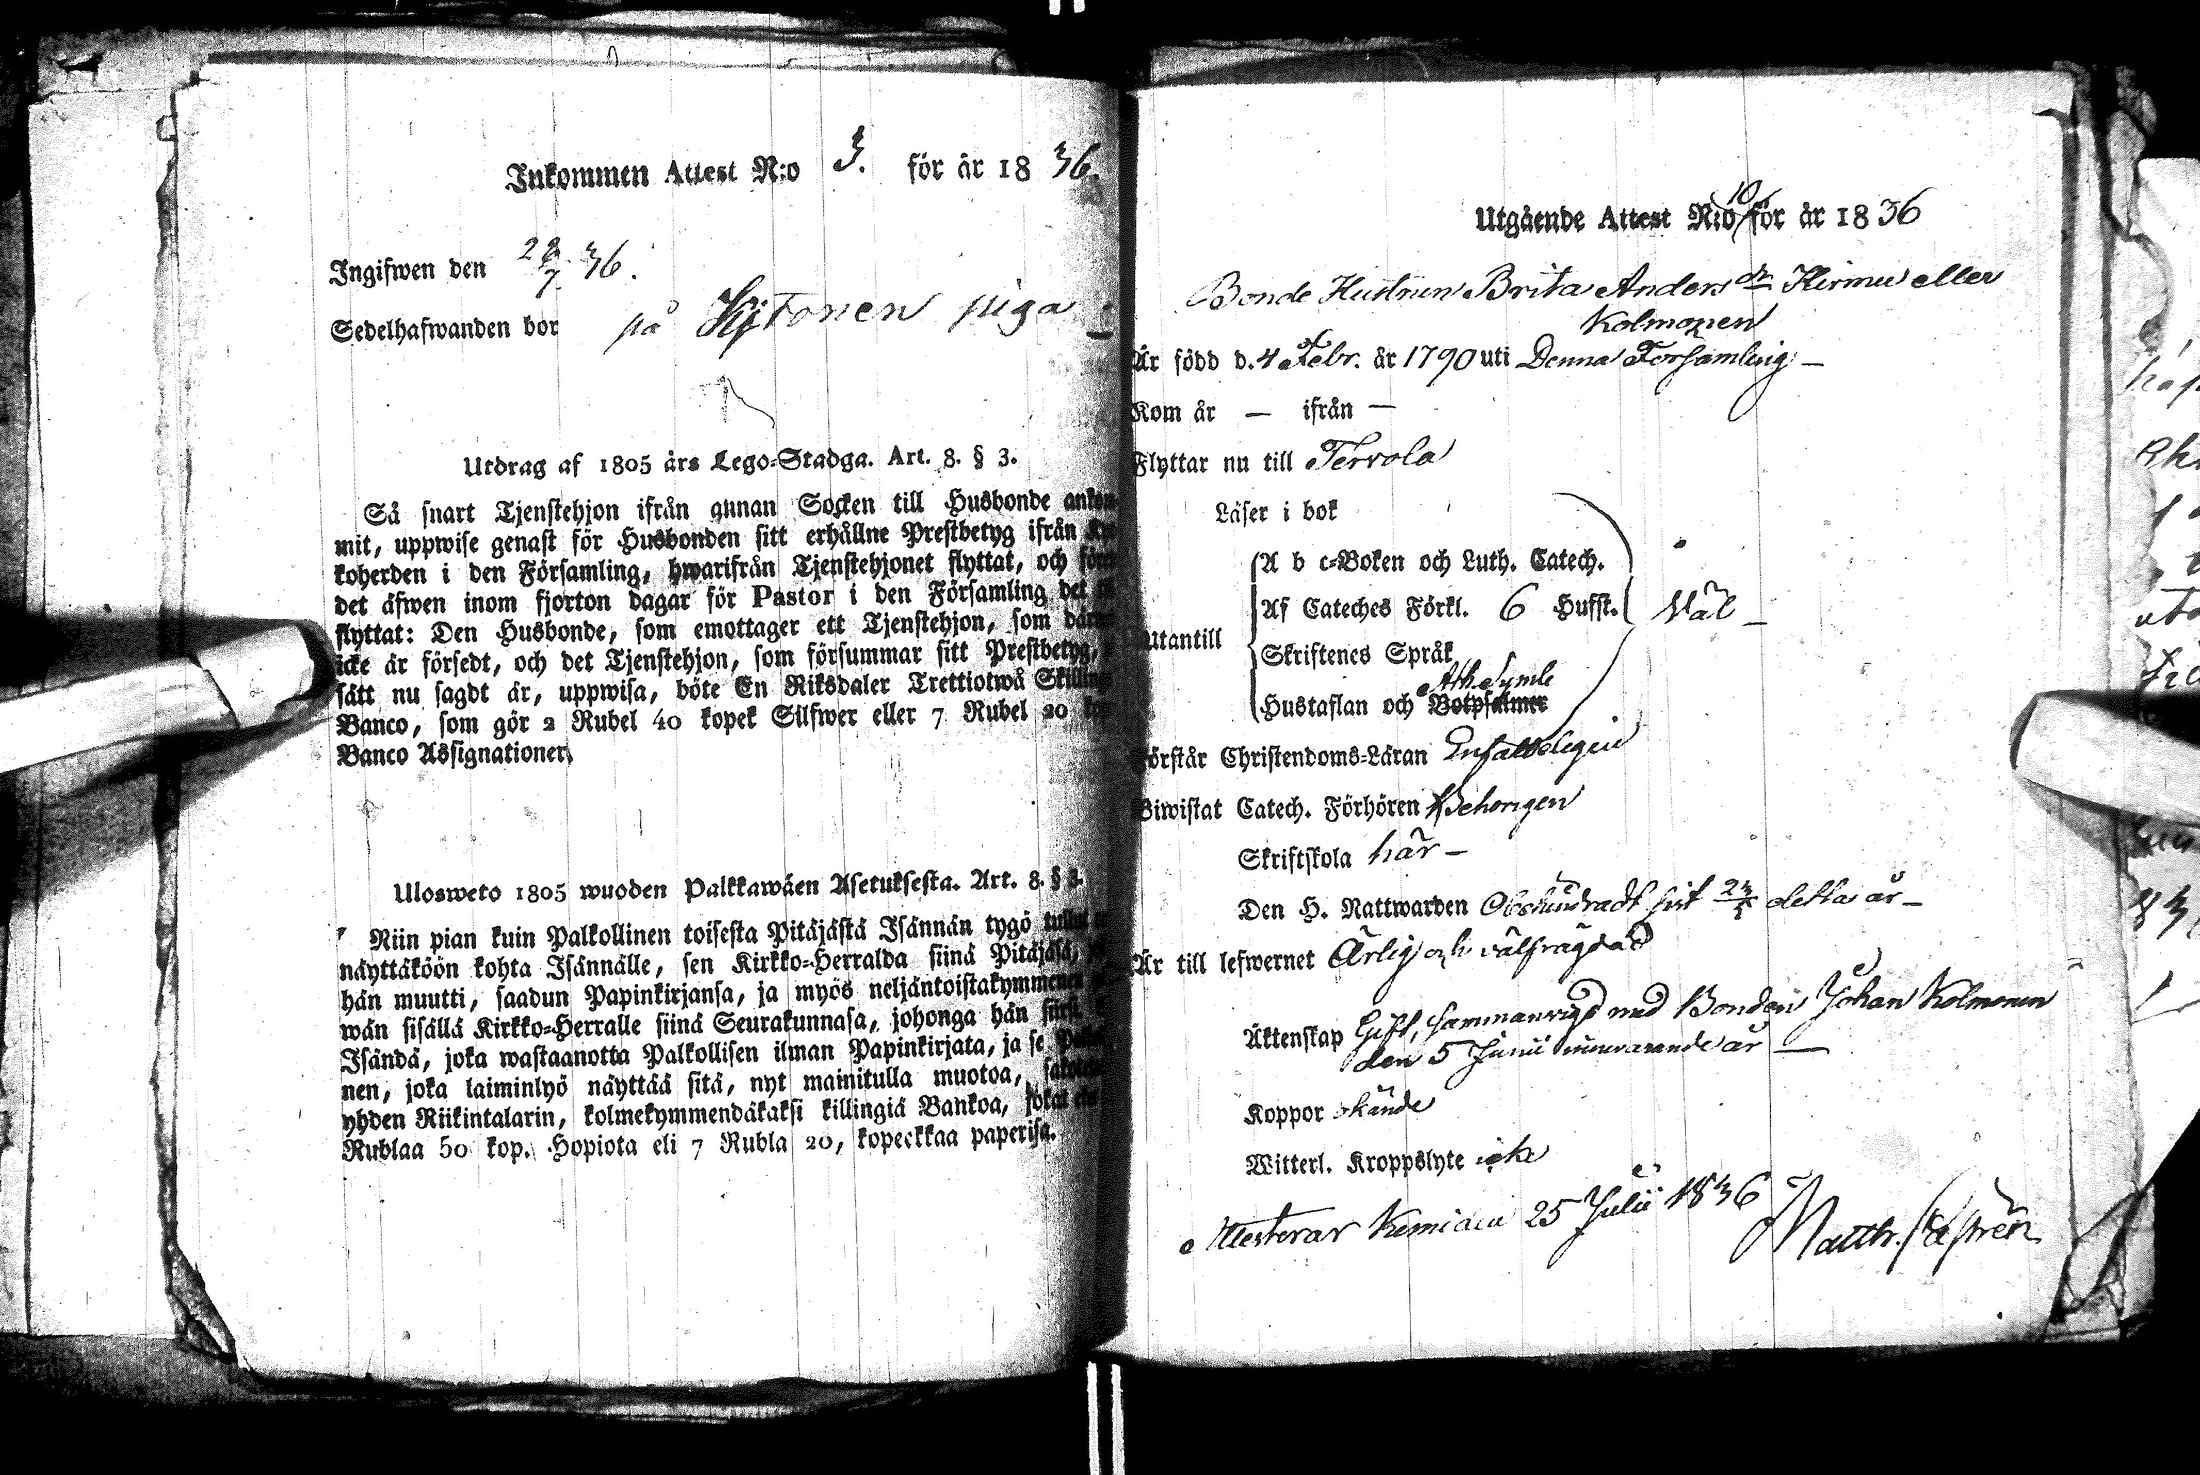 Inkommen Attest N:o 3. för år 1836.
Ingifwen den 28/7 36.
Sedelhafwanden bor på Kytönen piga
Utdrag af 1805 års Lego-Stadga. Art. 8. § 3.
Så snart Tjenstehjon ifrån annan Socken till Husbonde
mit, uppwise genast för Husbonden sitt erhållne Prestbetyg ifrån
koherden i den Församling, hwarifrån Tjenstehjonet flyttat, och
det äfwen inom fjorton dagar för Pastor i den Församling det
flyttat: Den Husbonde, som emottager ett Tjenstehjon, som
icke är försedt, och det Tjenstehjon, som försummar sitt Prestbetyg,
sätt nu sagdt är, uppwisa, böte En Riksdaler Trettiotwå
Banco, som gör 2 Rubel 40 kopek Silfwer eller 7 Rubel 20
Banco Assignationer.
Ulosweto 1805 wuoden Palkkawäen Asetuksesta. Art. 8. § 3.
Niin pian kuin Palkollinen toisesta Pitäjästä Isännän tygö
näyttäköön kohta Isännälle, sen Kirkko-Herralda siinä Pitäjäsä,
hän muutti, saadun Papinkirjansa, ja myös neljäntoistakymmenen
wän sisällä Kirkko-Herralle siinä Seurakunnasa, johonga hän
Isändä, joka wastaanotta Palkollisen ilman Papinkirjata, ja se
nen, joka laiminlyö näyttää sitä, nyt mainitulla muotoa,
yhden Riikintalarin, kolmekymmendäkaksi killingiä Bankoa,
Rublaa 50 kop. Hopiota eli 7 Rubla 20, kopeekkaa paperisa.
Utgående Attest N:o 10 för år 1836
Bonde Hustrun Brita Andersdr Hirmu eller
Kolmonen
Är född d. 4 Febr. år 1790 uti Denna Församling —
Kom år — ifrån —
Flyttar nu till Tervola
Läser i bok
A b c-Boken och Luth. Catech.
Af Cateches Förkl. 6 Hufst. Väl —
Utantill
Skriftenes Språk
Ath Symb
Hustaflan och Botpsalmer
Förstår Christendoms-Läran Enfaldeligen
Biwistat Catech. Förhören Behörigen
Skriftskola här —
Den H. Nattwarden sist detta år —
Är till lefwernet Ärlig och välfrägdad
Äktenskap Gift, sammanvigd med Bonden Johan Kolmonen
den 5 Junii innevarande år —
Koppor
Witterl. Kroppslyte
Attesterar Kemi den 25 Julii 1836 Matth. Castrén